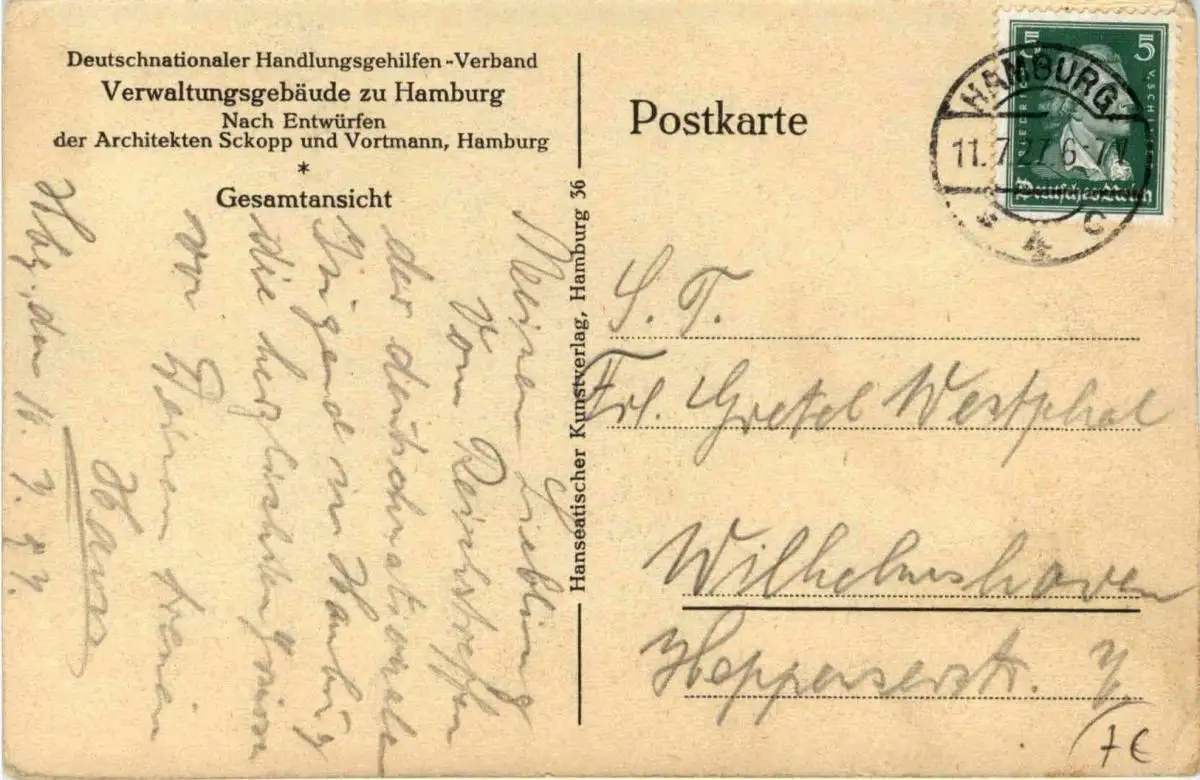 Deutschnationaler Handlungsgehilfen-Verband
Verwaltungsgebäude zu Hamburg
Nach Entwürfen
der Architekten Sckopp und Vortmann, Hamburg
*
Gesamtansicht
Meinem Liebling
Vom Reichstreffen
der deutschnationalen
Jugend in Hambūrg
die herzlichsten Grüsse
von Deinem treuen
Hans
Hbg., den 7. 27.
Hanseatischer Kunstverlag, Hamburg 36
Postkarte
5 5
Deutsches Reich
HAMBURG
11.7.27. 6-7
* * C
S. T.
Frl. Gretel Westphal
Wilhelmshaven
Heppenserstr. 7.
7€